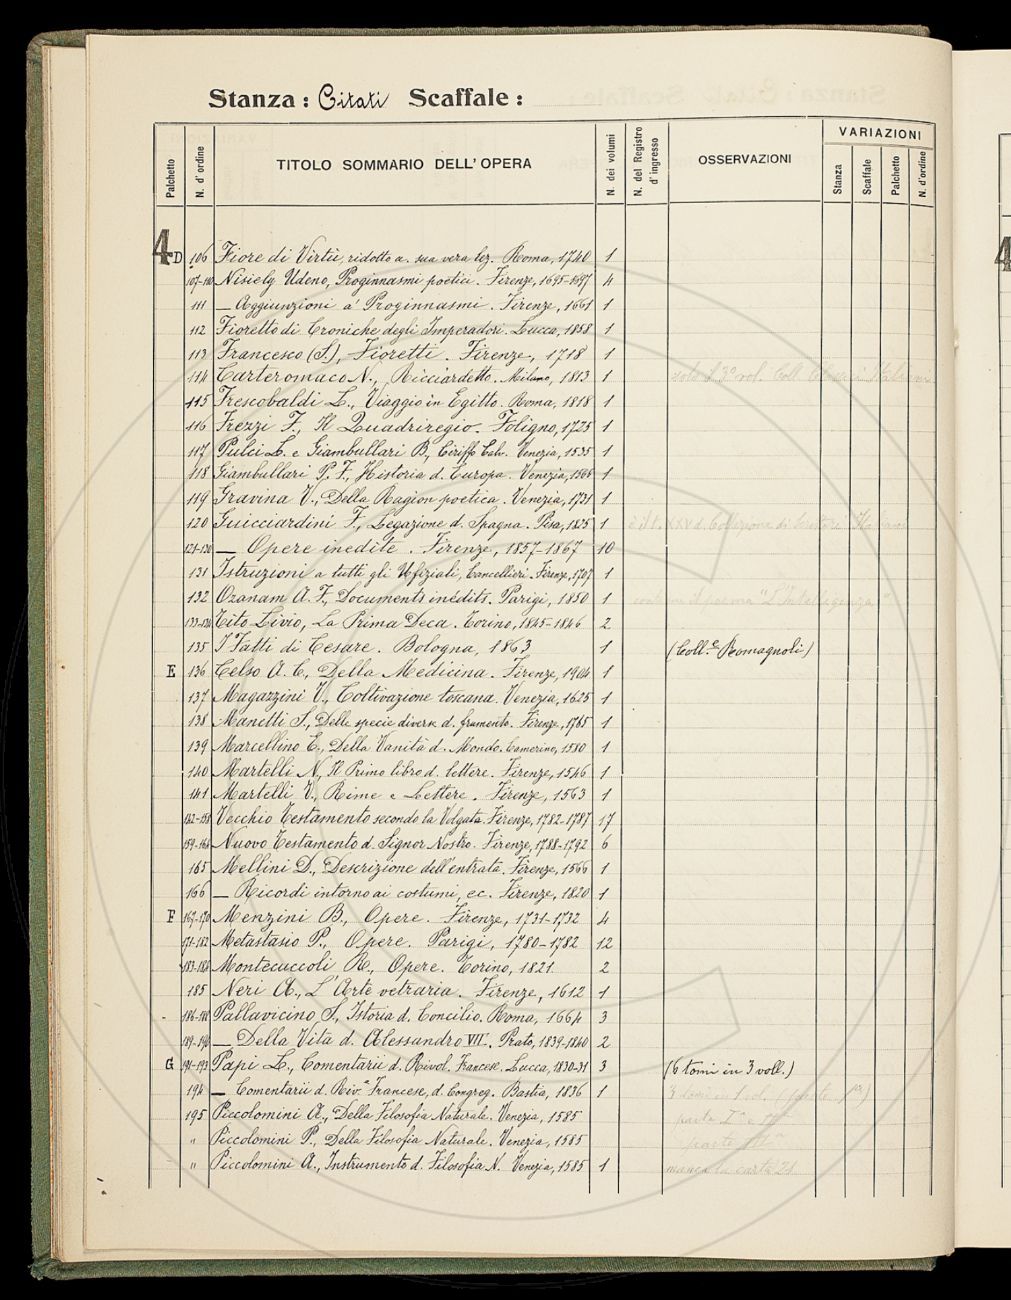 Stanza: Citati Scaffale:
Palchetto N. d'ordine TITOLO SOMMARIO DELL'OPERA N. dei volumi N. del Registro d'ingresso OSSERVAZIONI VARIAZIONI
Stanza Scaffale Palchetto N. d'ordine
4 D 106 Fiore di Virtù, ridotto a. sua vera lez. Roma, 1740 1
107-110 Nisiely Udeno, Proginnasmi poetici. Firenze, 1695-1697 4
111 — Aggiunzioni a' Proginnasmi. Firenze, 1661 1
112 Fioretto di Croniche degli Imperadori. Lucca, 1858 1
113 Francesco (S.), Fioretti. Firenze, 1718 1
114 Carteromaco N., Ricciardetto. Milano, 1813 1 solo il 3° vol. Coll. Classici Italiani
115 Frescobaldi L., Viaggio in Egitto. Roma, 1818 1
116 Frezzi F., Il Quadriregio. Foligno, 1725 1
117 Pulci L. e Giambullari B., Ciriffo Calv. Venezia, 1535 1
118 Giambullari P. F., Historia d. Europa. Venezia, 1566 1
119 Gravina V., Della Ragion poetica. Venezia, 1731 1
120 Guicciardini F., Legazione d. Spagna. Pisa, 1825 1 è il t. XXV d. Collezione di Scrittori Italiani
121-130 — Opere inedite. Firenze, 1857-1867 10
131 Istruzioni a tutti gli Ufiziali, Cancellieri. Firenze, 1707 1
132 Ozanam A. F., Documents inédits. Parigi, 1850 1 contiene il poema "L'Intelligenza"
133-134 Tito Livio, La Prima Deca. Torino, 1845-1846 2
135 I Fatti di Cesare. Bologna, 1863 1 (Coll.e Romagnoli)
E 136 Celso A. C., Della Medicina. Firenze, 1904 1
137 Magazzini V., Coltivazione toscana. Venezia, 1625 1
138 Manetti S., Delle specie diverse d. frumento. Firenze, 1765 1
139 Marcellino E., Della Vanità d. Mondo. Camerino, 1580 1
140 Martelli N., Il Primo libro d. lettere. Firenze, 1546 1
141 Martelli V., Rime e Lettere. Firenze, 1563 1
142-158 Vecchio Testamento secondo la Volgata. Firenze, 1782-1787 17
159-164 Nuovo Testamento d. Signor Nostro. Firenze, 1788-1792 6
165 Mellini D., Descrizione dell'entrata. Firenze, 1566 1
166 — Ricordi intorno ai costumi, ec. Firenze, 1820 1
F 167-170 Menzini B., Opere. Firenze, 1731-1732 4
171-182 Metastasio P., Opere. Parigi, 1780-1782 12
183-184 Montecuccoli R., Opere. Torino, 1821 2
185 Neri A., L'Arte vetraria. Firenze, 1612 1
186-188 Pallavicino S., Istoria d. Concilio. Roma, 1664 3
189-190 — Della Vita d. Alessandro VII. Prato, 1839-1840 2
G 191-193 Papi L., Comentarii d. Rivol. Francese. Lucca, 1830-31 3 (6 tomi in 3 voll.)
194 — Comentarii d. Riv.e Francese, d. Congreg. Bastia, 1836 1 3 tomi in 1 vol.
195 Piccolomini A., Della Filosofia Naturale. Venezia, 1585 parte Ia e IIa
" Piccolomini P., Della Filosofia Naturale. Venezia, 1585 parte IIIa
" Piccolomini A., Instrumento d. Filosofia N. Venezia, 1585 1 manca la carta 21
4